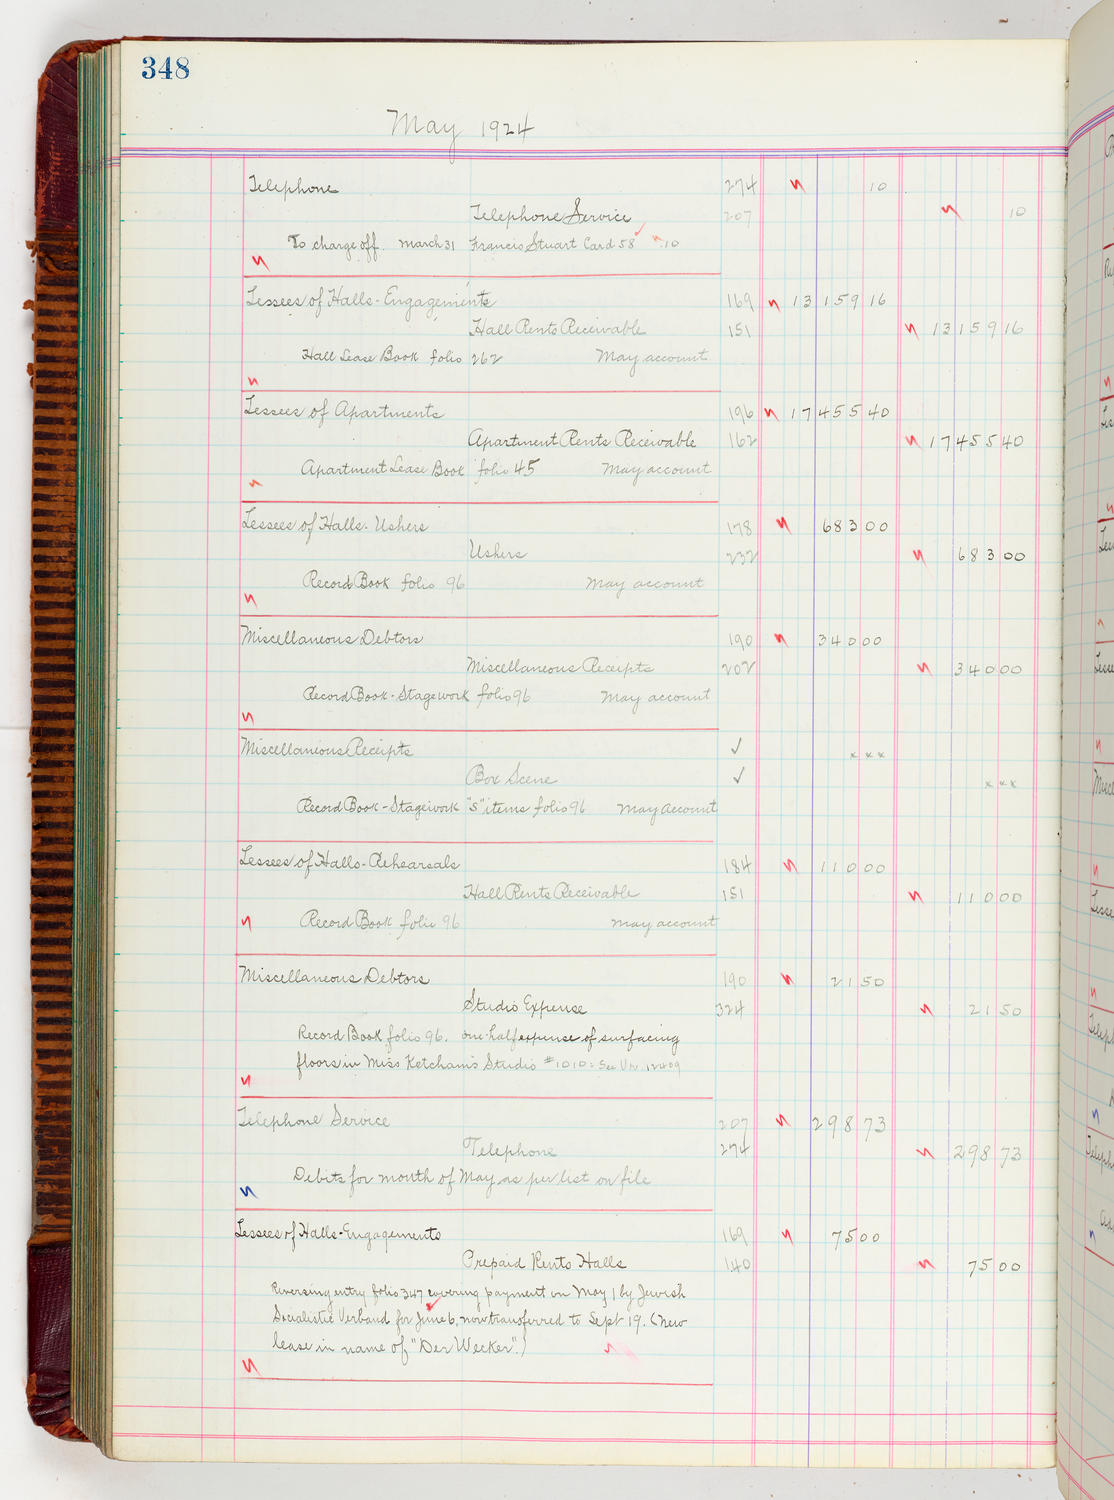 348
May 1924
Telephone 274 10
Telephone Service 207 10
To charge off. March 31 Francis Stuart Card 58 .10
Lessees of Halls - Engagements 169 13 159 16
Hall Rents Receivable 151 13 159 16
Hall Lease Book folio 262 May account
Lessees of Apartments 196 17 455 40
Apartment Rents Receivable 162 17 455 40
Apartment Lease Book folio 45 May account
Lessees of Halls - Ushers 178 683 00
Ushers 232 683 00
Record Book folio 96 May account
Miscellaneous Debtors 190 340 00
Miscellaneous Receipts 202 340 00
Record Book - Stagework folio 96 May account
Miscellanious Receipts ✓ x x x
Box Scene ✓ x x x
Record Book - Stagework "S" items folio 96 May Account
Lessees of Halls - Rehearsals 184 110 00
Hall Rents Receivable 151 110 00
Record Book folio 96 May account
Miscellaneous Debtors 190 21 50
Studio Expense 324 21 50
Record Book folio 96. one-half expense of surfacing
floors in Miss Ketcham's Studio #1010 = See Vr. 12409
Telephone Service 207 298 73
Telephone 274 298 73
Debits for month of May as per list on file
Lessees of Halls - Engagements 169 75 00
Prepaid Rents Halls 140 75 00
Reversing entry folio 347 covering payment on May 1 by Jewish
Socialistic Verband for June 6, now transferred to Sept 19. (New
lease in name of "Der Wecker".)